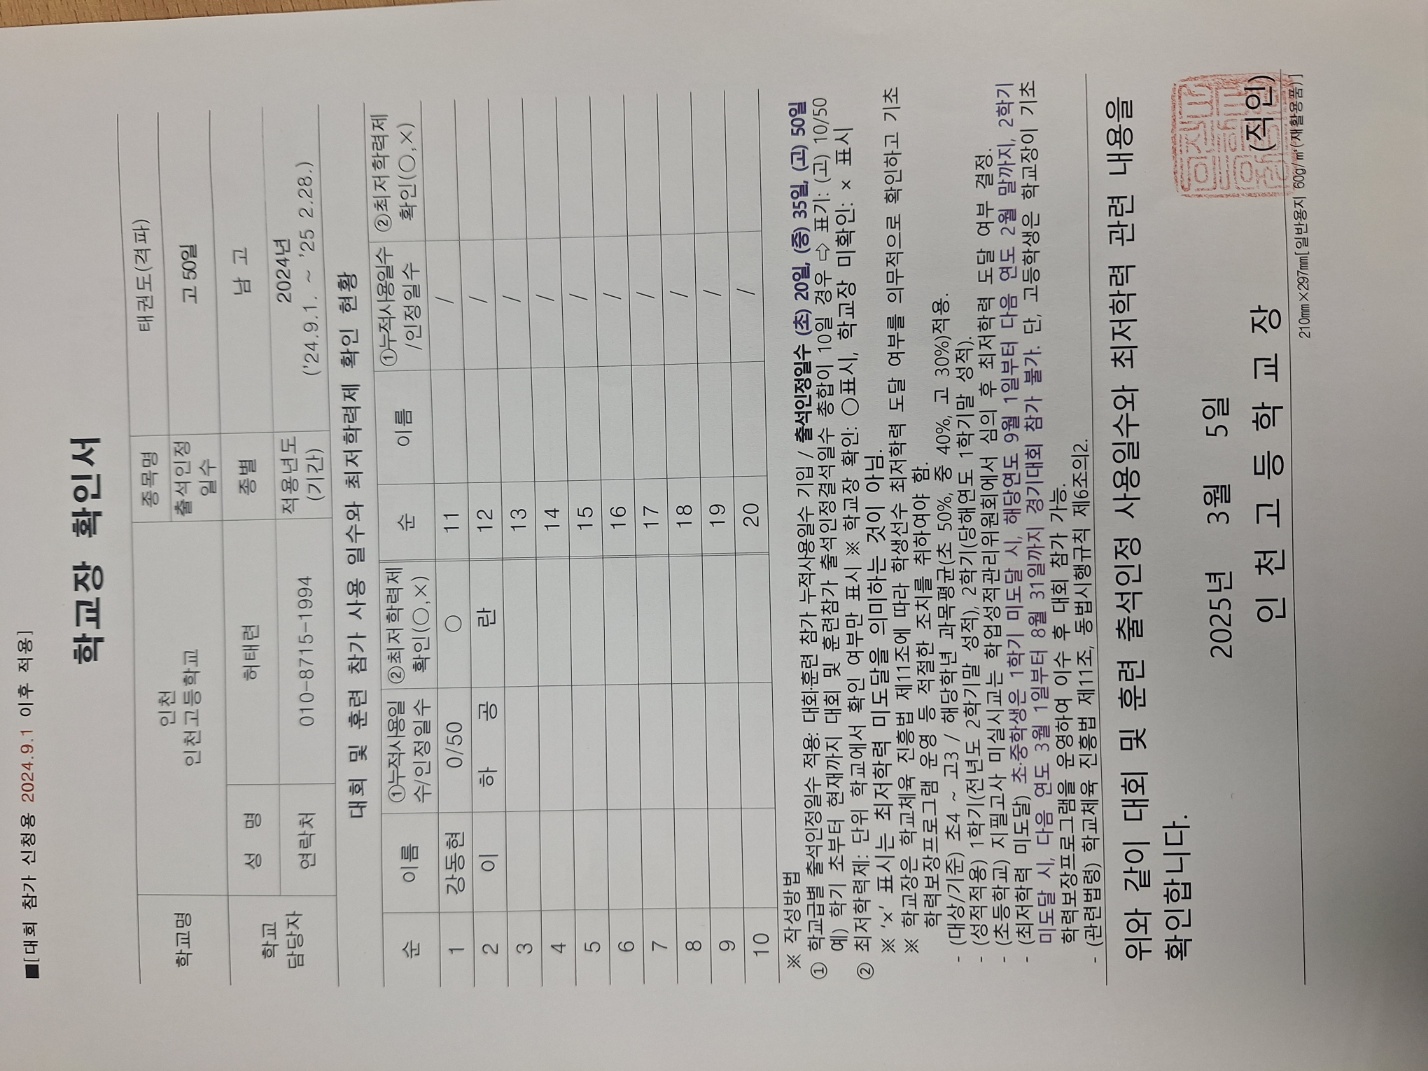 ■[대회 참가 신청용 2024.9.1 이후 적용]
학교장 확인서
학교명 인천 인천고등학교 종목명 태권도(격파)
출석인정일수 고 50일
학교 담당자 성 명 허태련 종별 남 고
연락처 010-8715-1994 적용년도 (기간) 2024년 ('24.9.1. ~ '25 2.28.)
대회 및 훈련 참가 사용 일수와 최저학력제 확인 현황
순 이름 ①누적사용일수/인정일수 ②최저학력제 확인(○,×) 순 이름 ①누적사용일수/인정일수 ②최저학력제 확인(○,×)
1 강동현 0/50 ○ 11 /
2 이 하 공 란 12 /
3 13 /
4 14 /
5 15 /
6 16 /
7 17 /
8 18 /
9 19 /
10 20 /
※ 작성방법
① 학교급별 출석인정일수 적용: 대회·훈련 참가 누적사용일수 기입 / 출석인정일수 (초) 20일, (중) 35일, (고) 50일
예) 학기 초부터 현재까지 대회 및 훈련참가 출석인정결석일수 총합이 10일 경우 ⇨ 표기: (고) 10/50
② 최저학력제: 단위 학교에서 확인 여부만 표시 ※ 학교장 확인: ○표시, 학교장 미확인: × 표시
※ '×' 표시는 최저학력 미도달을 의미하는 것이 아님.
※ 학교장은 학교체육 진흥법 제11조에 따라 학생선수 최저학력 도달 여부를 의무적으로 확인하고 기초
학력보장프로그램 운영 등 적절한 조치를 취하여야 함.
- (대상/기준) 초4 ~ 고3 / 해당학년 과목평균(초 50%, 중 40%, 고 30%)적용.
- (성적적용) 1학기(전년도 2학기말 성적), 2학기(당해연도 1학기말 성적).
- (초등학교) 지필고사 미실시교는 학업성적관리위원회에서 심의 후 최저학력 도달 여부 결정.
- (최저학력 미도달) 초·중학생은 1학기 미도달 시, 해당연도 9월 1일부터 다음 연도 2월 말까지, 2학기
미도달 시, 다음 연도 3월 1일부터 8월 31일까지 경기대회 참가 불가. 단, 고등학생은 학교장이 기초
학력보장프로그램을 운영하여 이수 후 대회 참가 가능.
- (관련법령) 학교체육 진흥법 제11조, 동법시행규칙 제6조의2.
위와 같이 대회 및 훈련 출석인정 사용일수와 최저학력 관련 내용을
확인합니다.
2025년 3월 5일
인 천 고 등 학 교 장 (직인)
210㎜×297㎜[일반용지 60g/㎡(재활용품)]